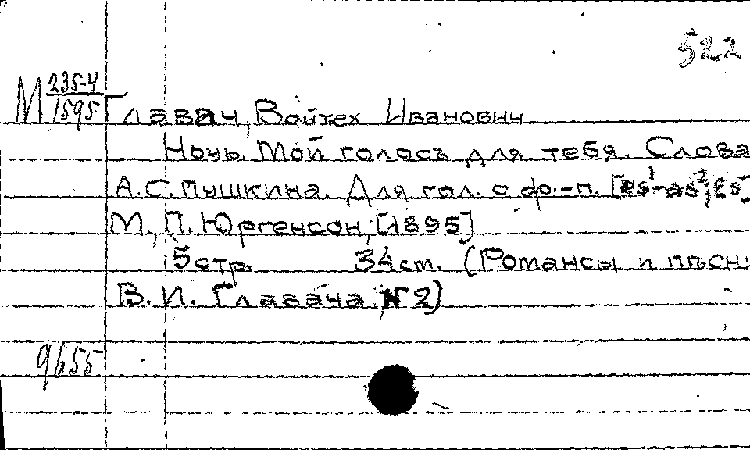 522
М 235-4
1595
Главач, Войтех Иванович
Ночь. Мой голосъ для тебя. Слова
А.С. Пушкина. Для гол. с ф.-п. [es¹-as²; Es]
М., П. Юргенсон, [1895]
5 стр. 34 см. (Романсы и пѣсн.
В.И. Главача, № 2)
9655